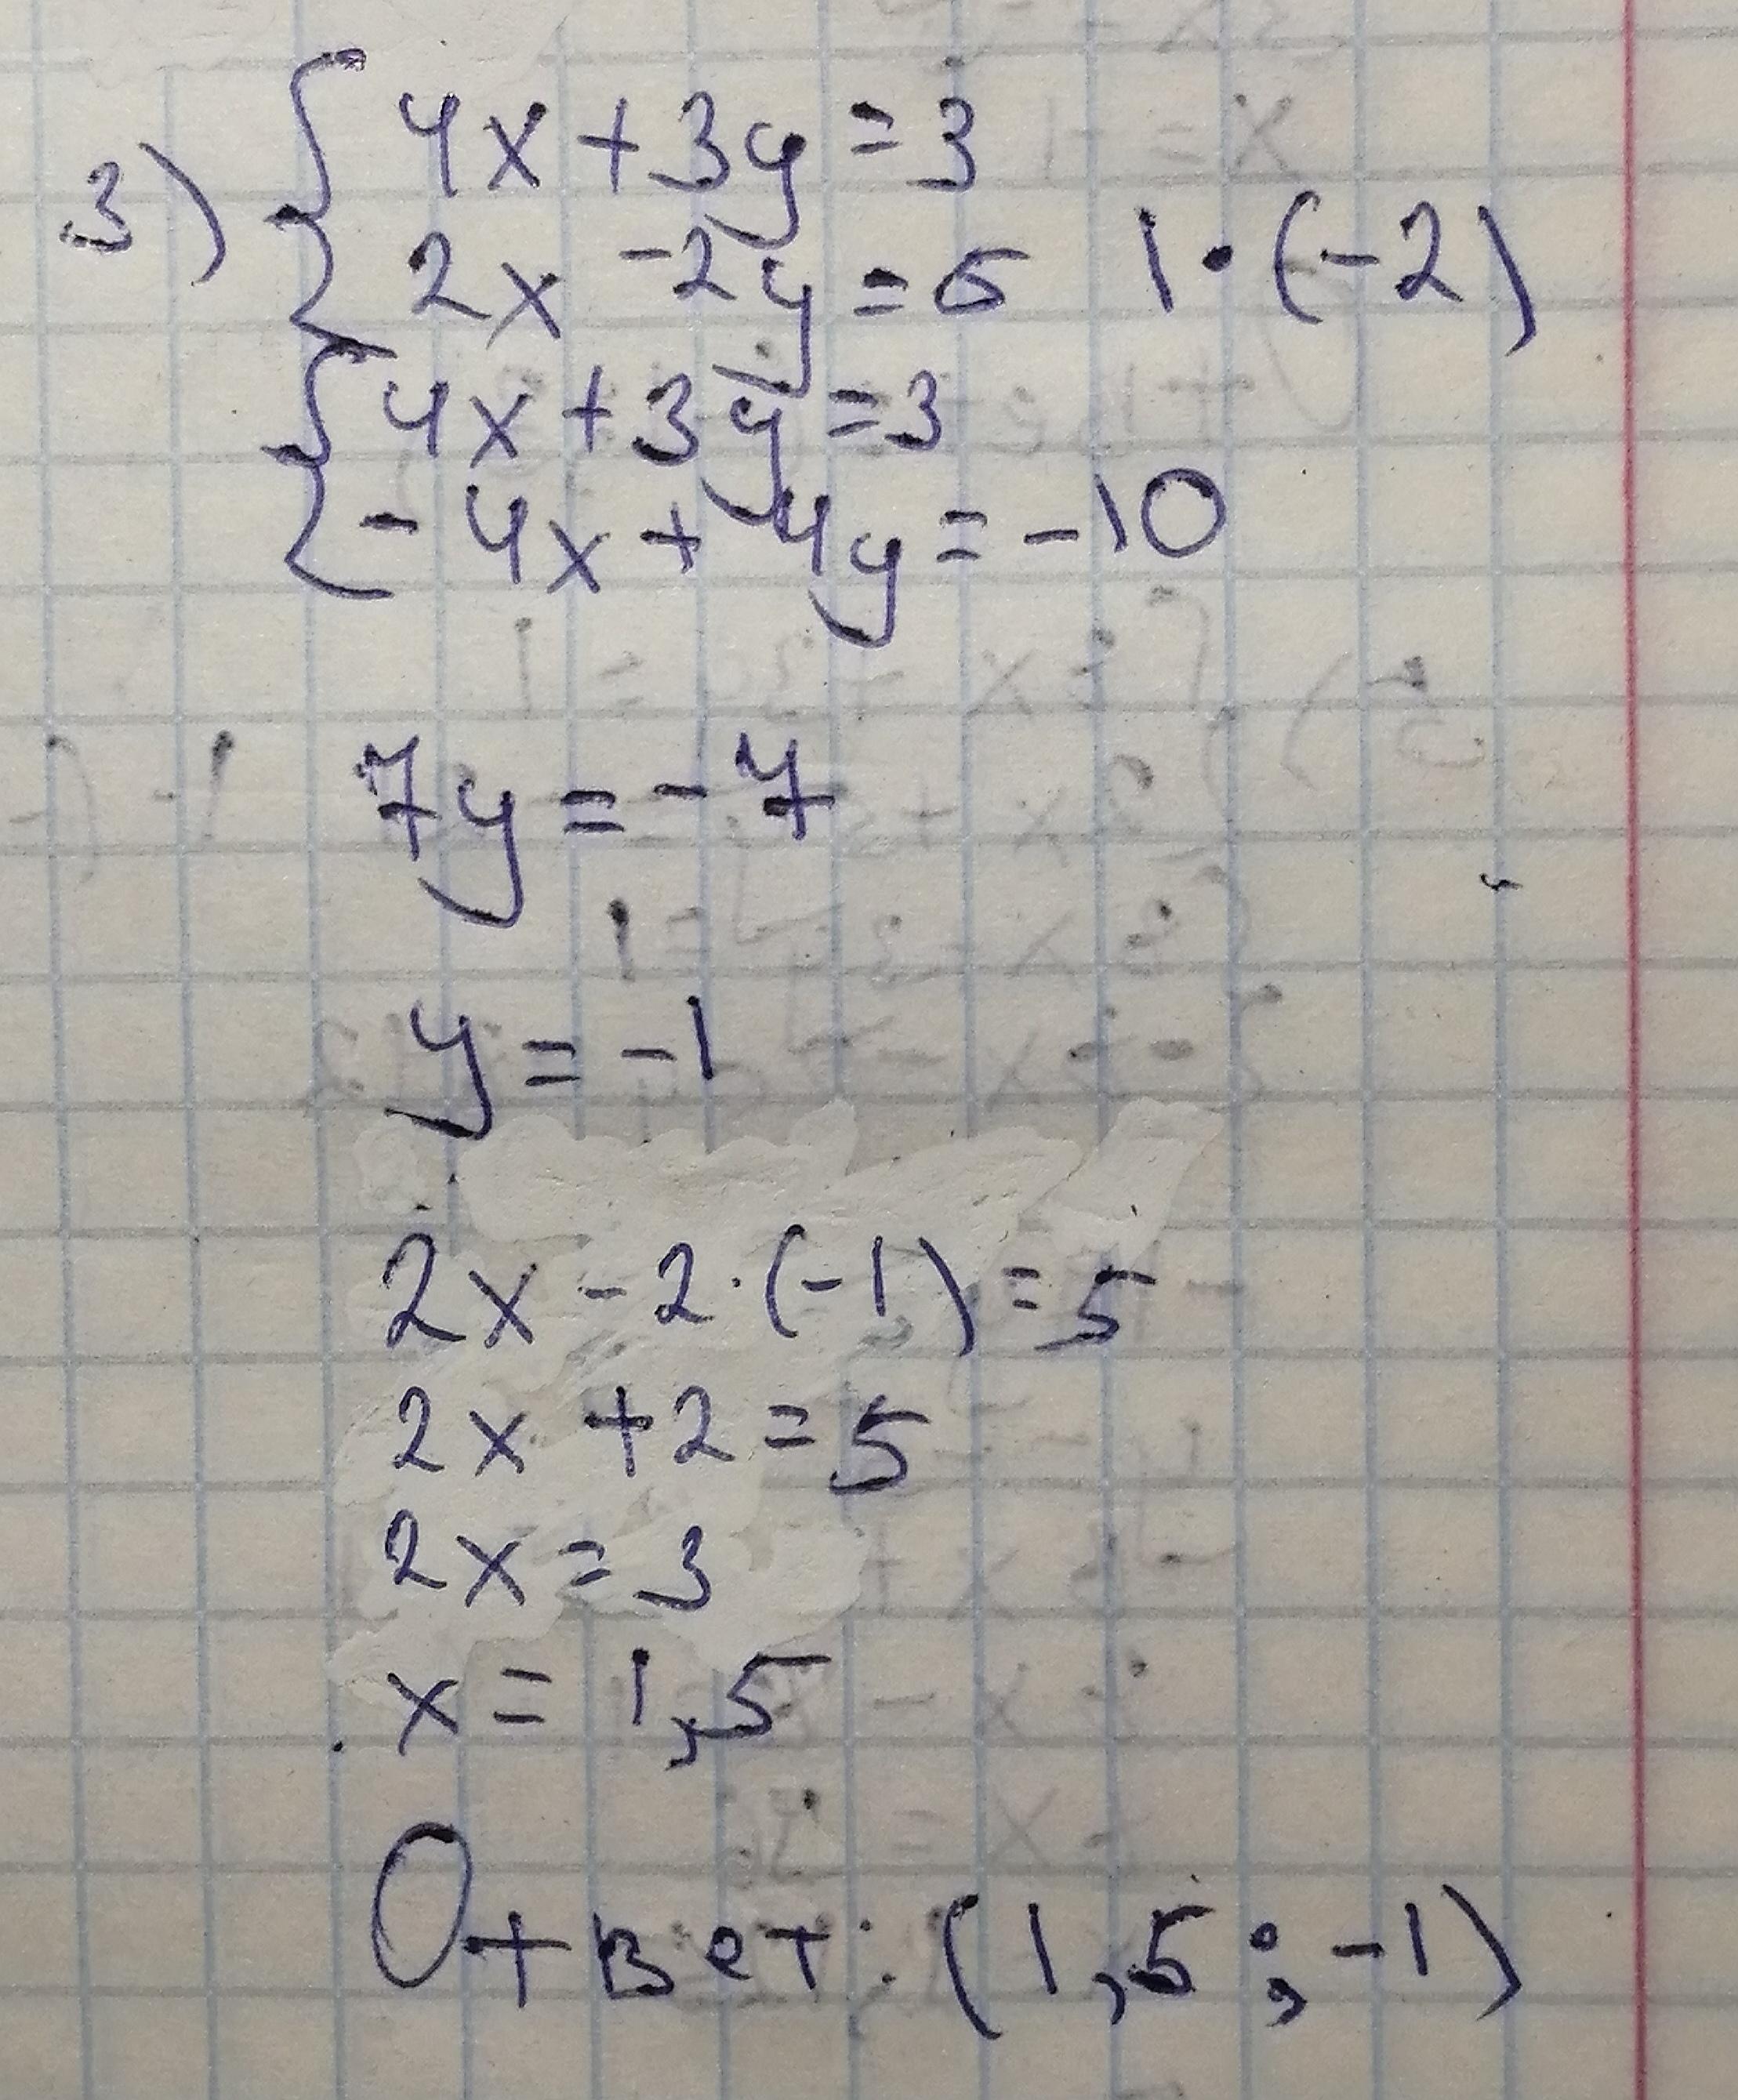 3) { 4x + 3y = 3
2x - 2y = 5 | · (-2)
{ 4x + 3y = 3
- 4x + 4y = - 10
7y = - 7
y = - 1
2x - 2 · (-1) = 5
2x + 2 = 5
2x = 3
x = 1,5
Ответ: (1,5 ; -1)